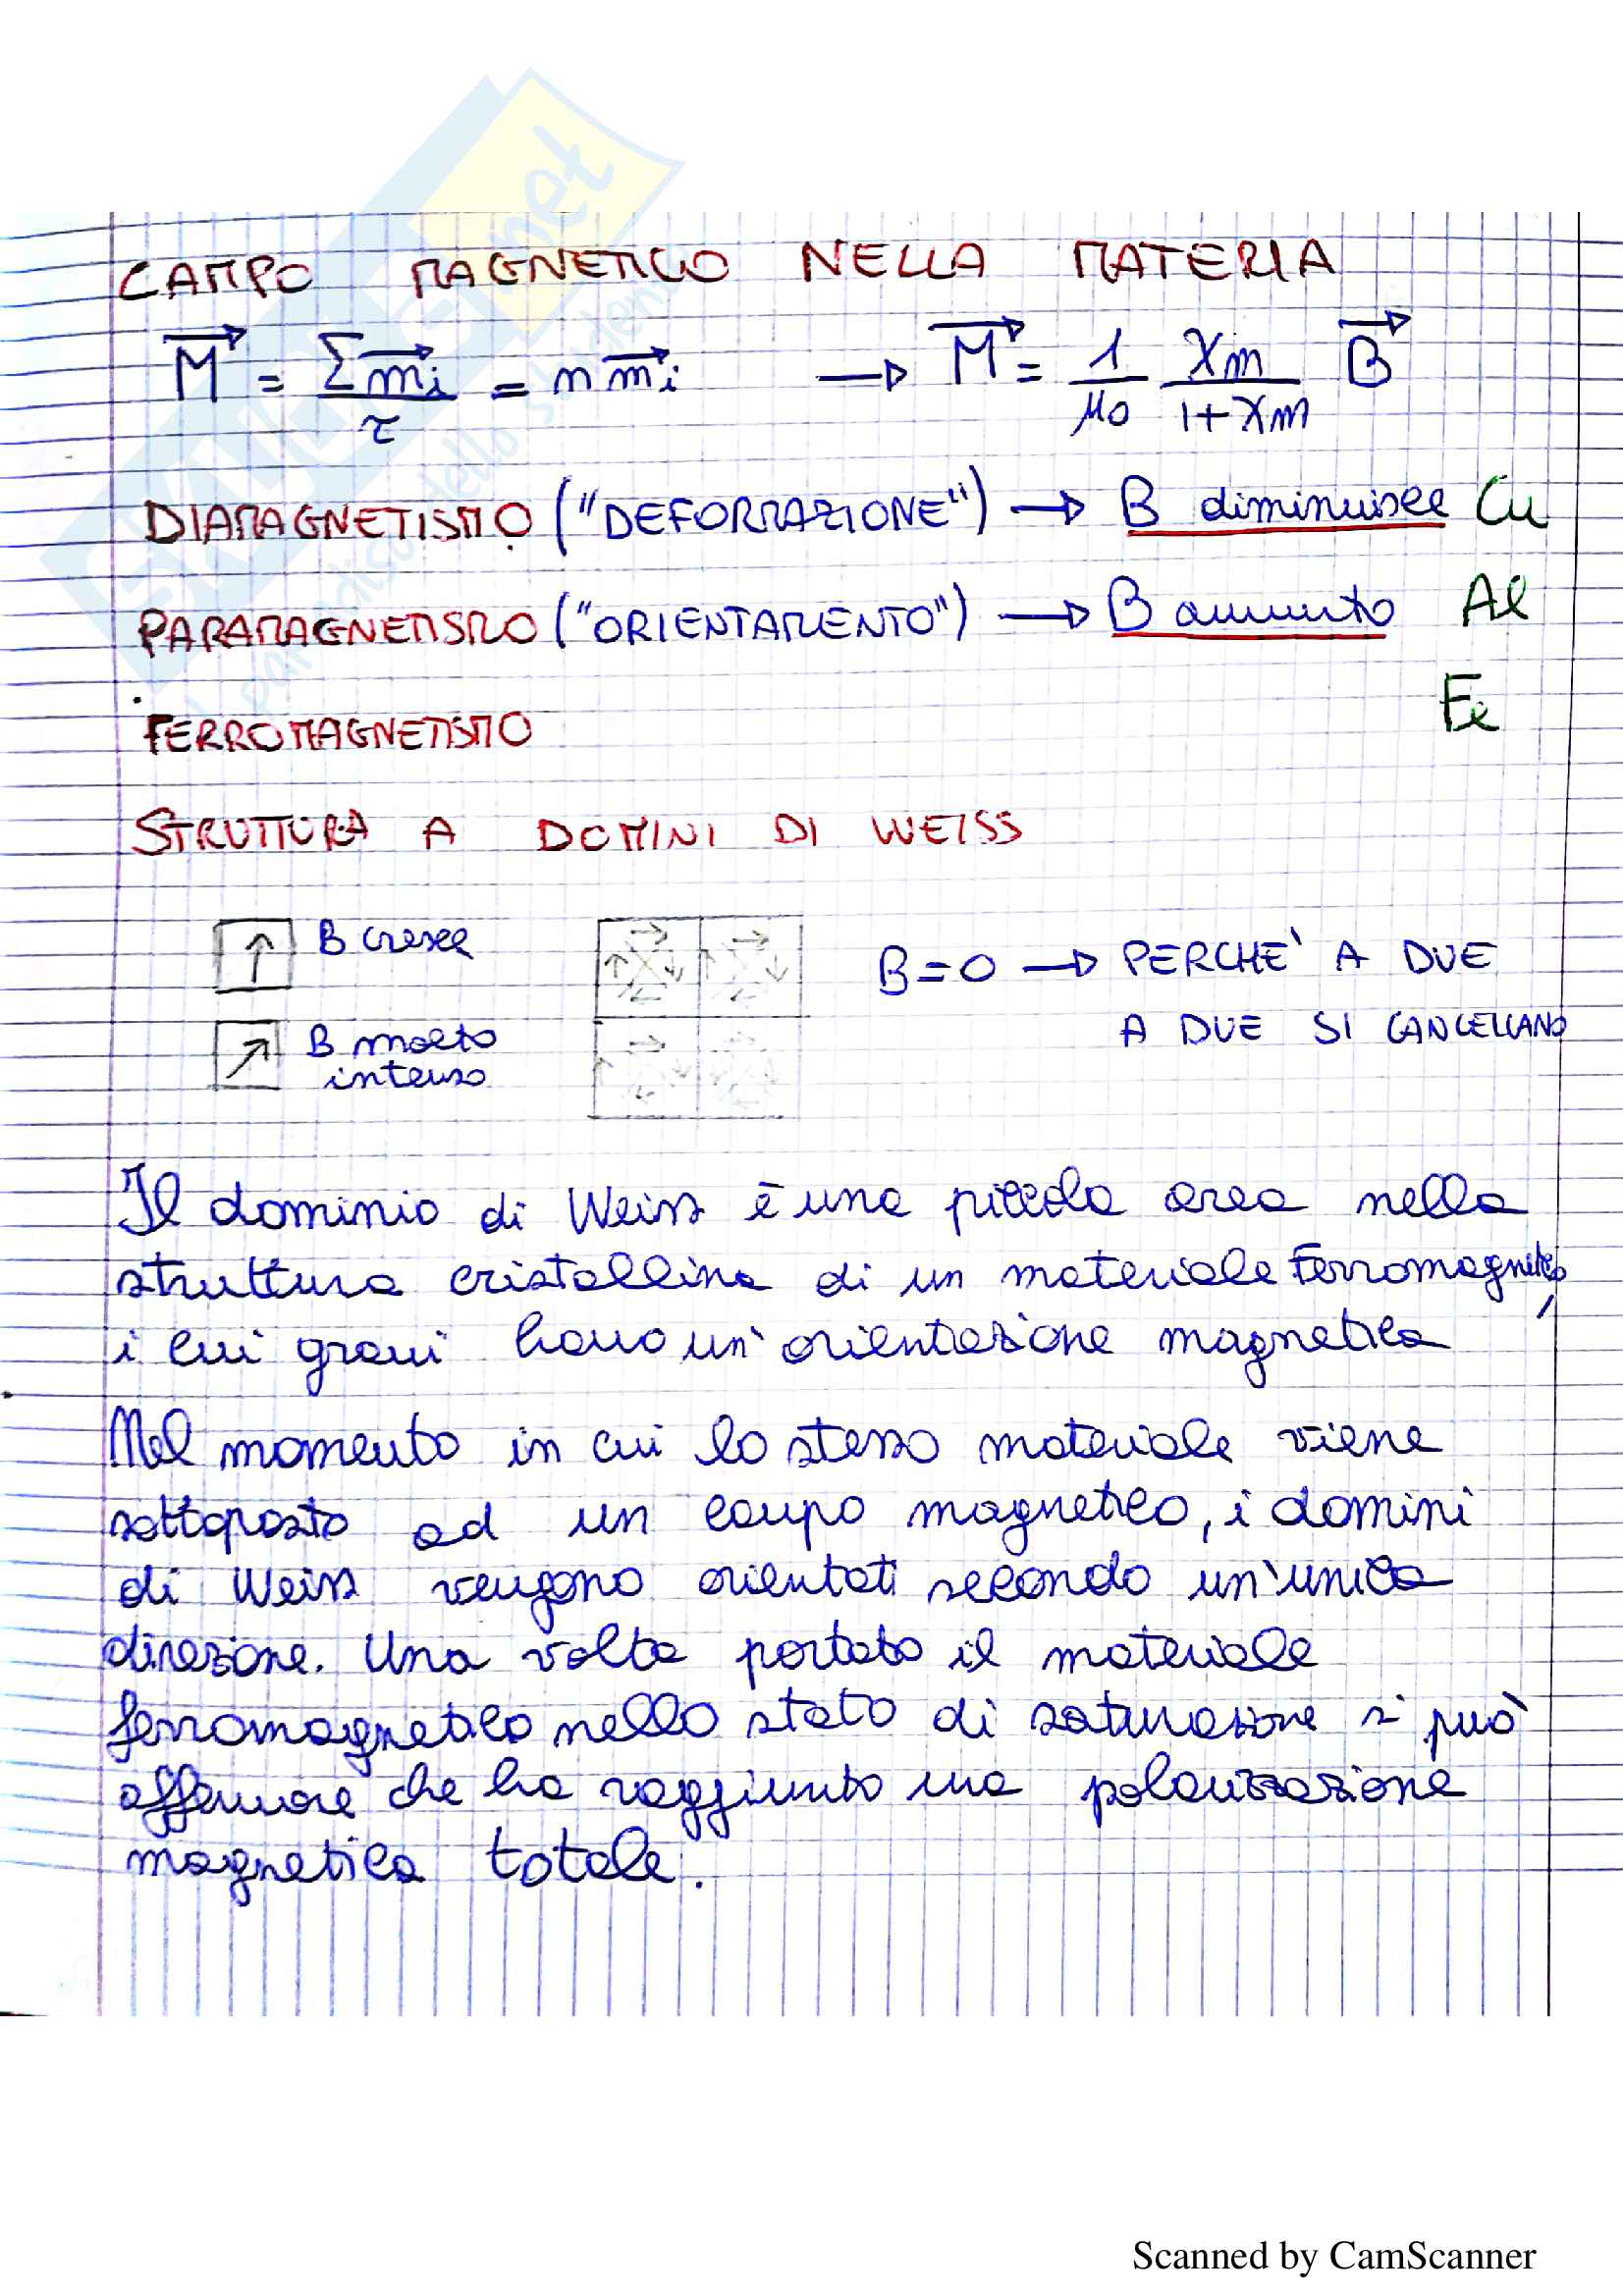 CAMPO MAGNETICO NELLA MATERIA
M⃗ = Σm⃗i / τ = n m⃗i → M⃗ = 1/μ0 χm/(1+χm) B⃗
DIAMAGNETISMO ("DEFORMAZIONE") → B diminuisce Cu
PARAMAGNETISMO ("ORIENTAMENTO") → B aumenta Al
FERROMAGNETISMO Fe
STRUTTURA A DOMINI DI WEISS
B cresce
B molto
intenso
B=0 → PERCHE' A DUE
A DUE SI CANCELLANO
Il dominio di Weiss è una piccola area nella
struttura cristallina di un materiale Ferromagnetico,
i cui grani hanno un'orientazione magnetica
Nel momento in cui lo stesso materiale viene
sottoposto ad un campo magnetico, i domini
di Weiss vengono orientati secondo un'unica
direzione. Una volta portato il materiale
ferromagnetico nello stato di saturazione si può
affermare che ha raggiunto una polarizzazione
magnetica totale.
Scanned by CamScanner